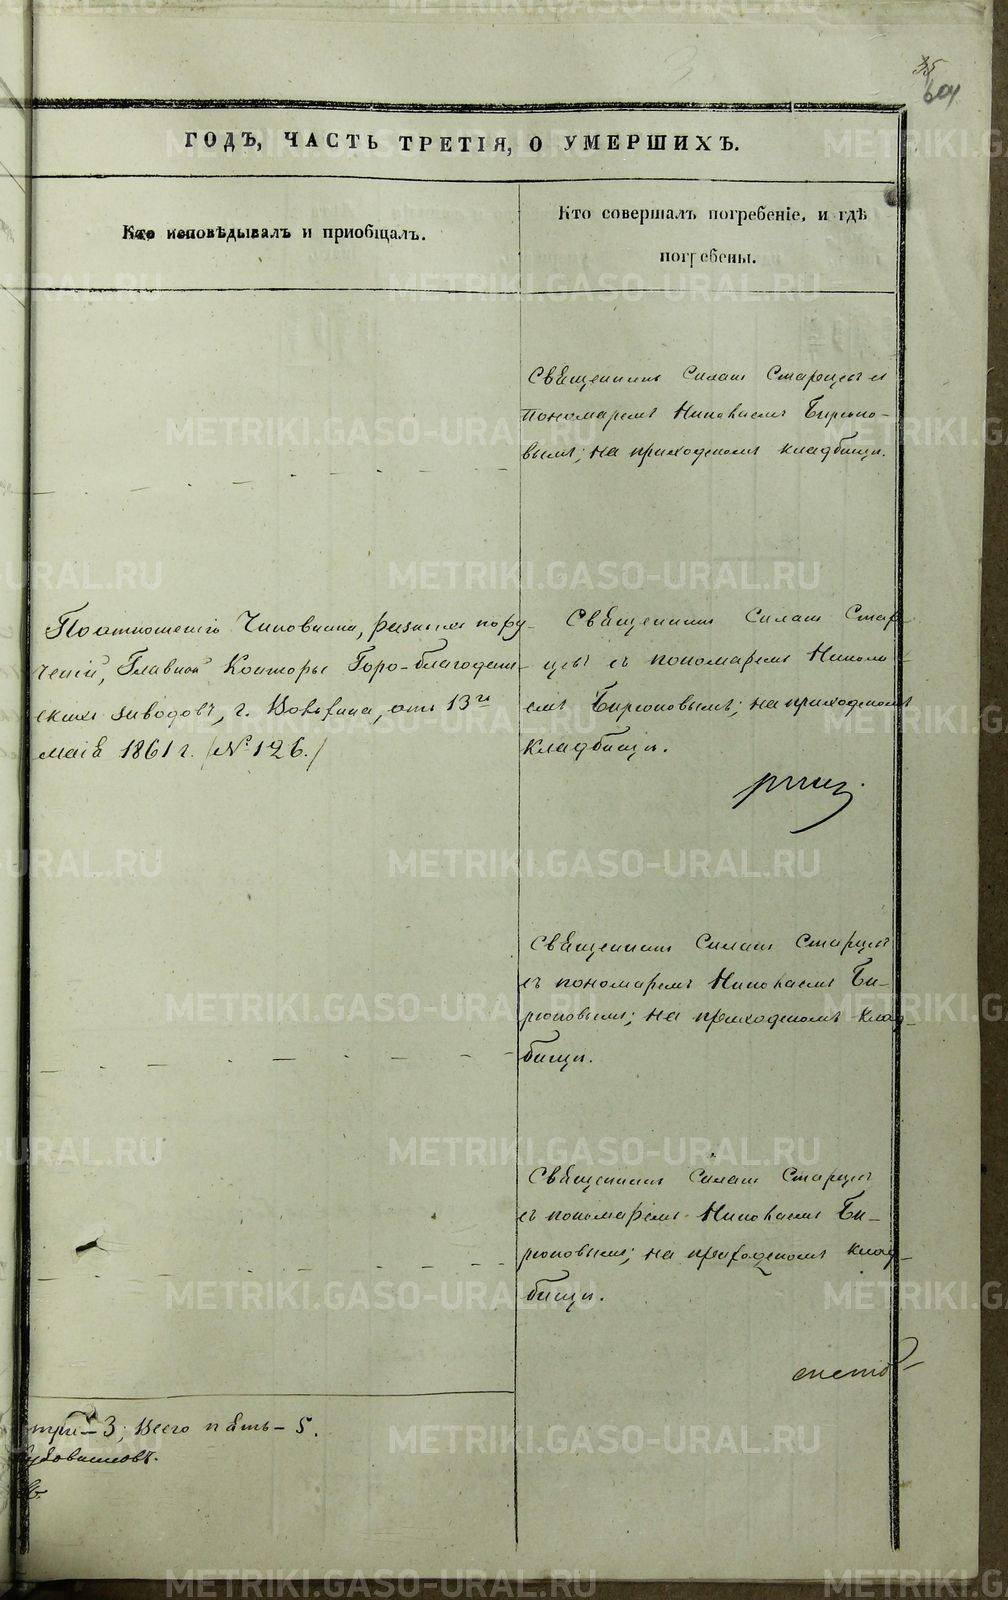 35
601
ГОДЪ, ЧАСТЬ ТРЕТІЯ, О УМЕРШИХЪ.
Кто исповѣдывалъ и пріобщалъ.
Кто совершалъ погребеніе, и гдѣ
погребены.
Священникъ Силаш Старцевъ съ
пономаремъ Николаемъ Бирюко-
вымъ; на приходскомъ кладбищѣ.
По отношенію Чиновника, разныхъ пору-
ченій, Главной Конторы Горо-благодат-
скихъ заводовъ, г. Вольфина, отъ 13го
маія 1861 г. (№ 126.)
Священникъ Силаш Стар-
цевъ съ пономаремъ Никола-
емъ Бирюковымъ; на приходскомъ
кладбищѣ.
Священникъ Силаш Старцевъ
съ пономаремъ Николаемъ Би-
рюковымъ; на приходскомъ клад-
бищѣ.
Священникъ Силаш Старцевъ
съ пономаремъ Николаемъ Би-
рюковымъ; на приходскомъ клад-
бищѣ.
три - 3; Всего пять - 5.
METRIKI.GASO-URAL.RU